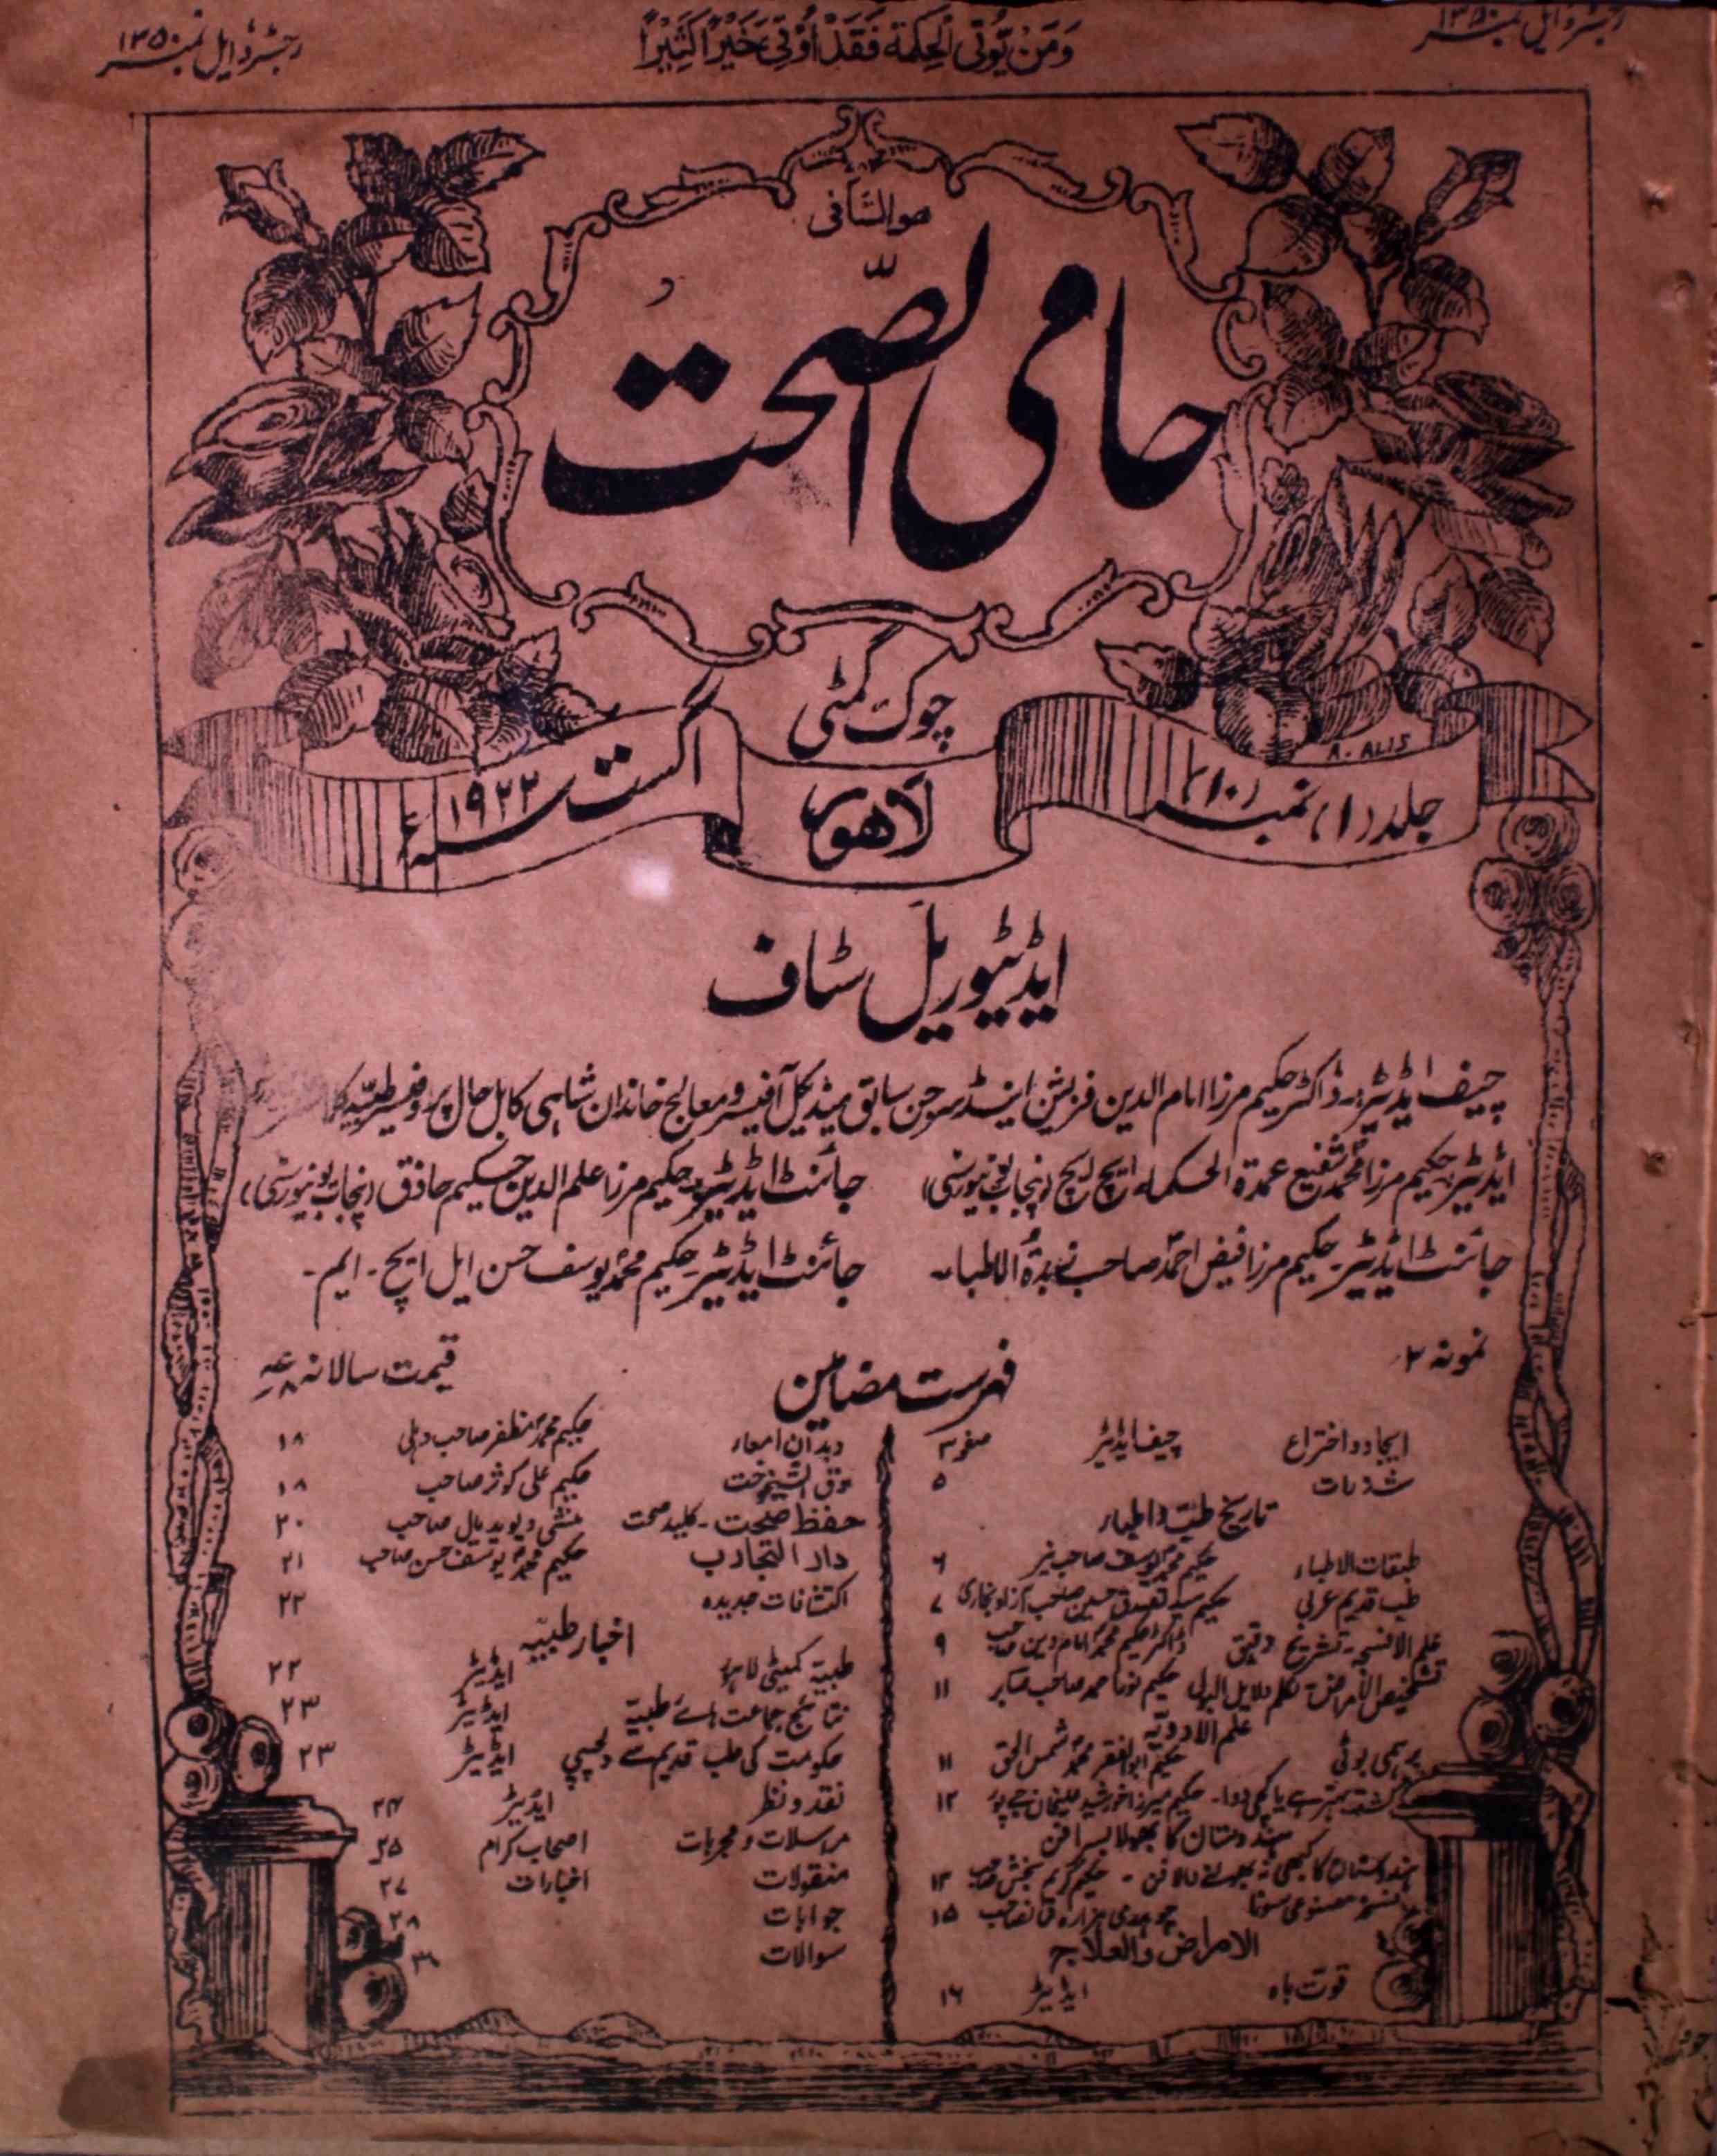 رجسٹرڈ ایل نمبر ۱۳۵۰
وَمَنْ یُّوْتَی الْحِکْمَةَ فَقَدْ اُوْتِیَ خَیْرًا کَثِیْرًا
رجسٹرڈ ایل نمبر ۱۳۵۰
ھوالشافی
حامی الصّحت
لاہور
چوک متی
لاھور
جلد (۱) نمبر (۱۰)
اگست سنہ ۱۹۲۲ء
A. ALIS
ایڈیٹوریل سٹاف
چیف ایڈیٹر:۔ ڈاکٹر حکیم مرزا امام الدین فزیشن اینڈ سرجن سابق میڈیکل آفیسر و معالج خاندان شاہی کابل حال پروفیسر طبّیہ کالج
ایڈیٹر: حکیم مرزا محمد شفیع عمدۃ الحکماء ایچ ایچ (پنجاب یونیورسٹی)
جائنٹ ایڈیٹر: حکیم مرزا علم الدین حکیم حاذق (پنجاب یونیورسٹی)
جائنٹ ایڈیٹر۔ حکیم مرزا فیض احمد صاحب زبدۃ الاطباء۔
جائنٹ ایڈیٹر۔ حکیم محمد یوسف حسن ایل ایچ۔ ایم۔
نمونہ ۲ر
فہرست مضامین
قیمت سالانہ
ایجاد و اختراع چیف ایڈیٹر صفحہ ۳
شذرات ۵
تاریخ طب و اطباء
طبقات الاطباء حکیم محمد یوسف صاحب نیر ۶
طب قدیم عربی حکیم سید تصدق حسین صاحب آزاد بخاری ۷
علم الانسجہ۔ تشریح دقیق ڈاکٹر حکیم محمد امام دین صاحب ۹
تشخیص الامراض۔ نظم دلایل البول حکیم صاحب صابر ۱۱
علم الادویّہ
برہمی بوٹی حکیم ابوالظفر محمد شمس الحق ۱۱
کشتہ بہتر ہے یا کچی دوا۔ حکیم میرزا خورشید ۱۲
ہندوستان کا بھولا بسرا فن
ہندوستان کا کبھی نہ بھولنے والا فن۔ حکیم کریم بخش صاحب ۱۴
نسخہ مصنوعی سونا چوہدری ہزارہ خانصاحب ۱۵
الامراض والعلاج
قوت باہ ایڈیٹر ۱۶
دیدان امعاء حکیم محمد مظفر صاحب دہلی ۱۸
حکیم علی کوثر صاحب ۱۸
حفظ صحت۔ کلید صحت منشی دیوید یال صاحب ۲۰
دار التجارب حکیم محمد یوسف حسن صاحب ۲۱
اکتشافات جدیدہ ۲۲
اخبار طبیّہ
طبیہ کمیٹی لاہور ایڈیٹر ۲۲
نتائج جماعت ہائے طبیّہ ایڈیٹر ۲۳
حکومت کی طب قدیم سے دلچسپی ایڈیٹر ۲۳
نقد و نظر ایڈیٹر ۲۴
مراسلات و مجربات اصحاب کرام ۲۵
منقولات اخبارات ۲۷
جوابات ۲۸
سوالات